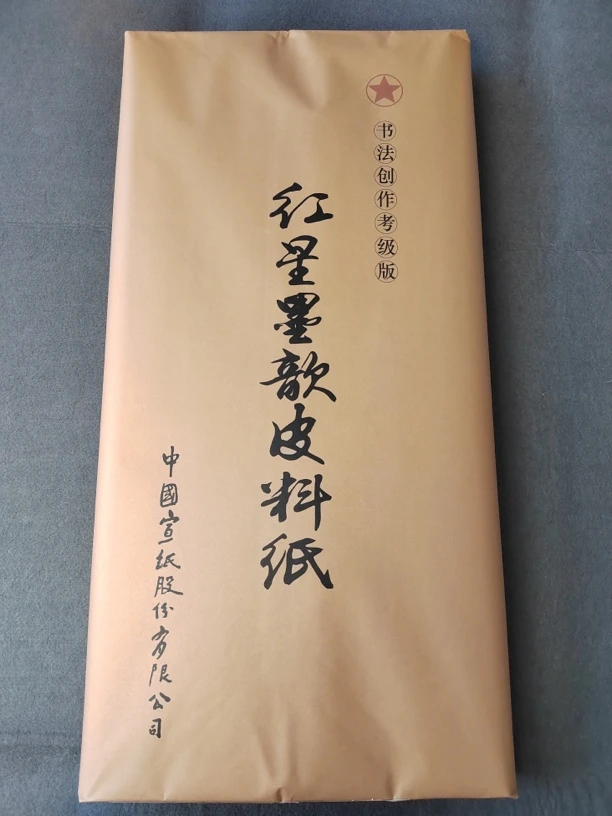 书法创作考级版
红星墨歆皮料纸
中國宣纸股份有限公司